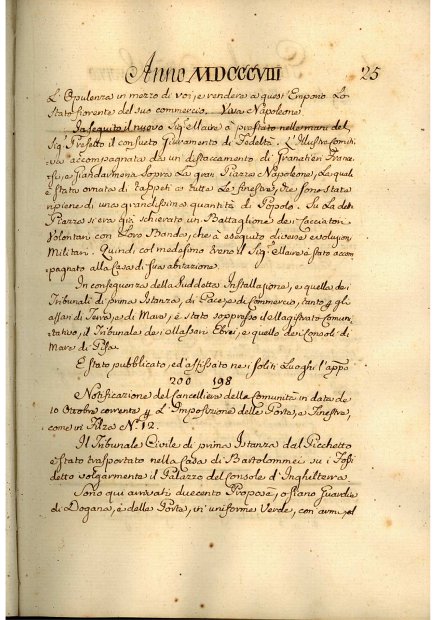 Anno MDCCCVIII 25
L'Opulenza in mezzo di voi, e rendere a quest'Emporio Lo
Stato fiorente del suo commercio. Viva Napoleone
In seguito il nuovo Sig.r Maire à prestato nelle mani del
Sig.r Prefetto il consueto Giuramento di Fedeltà. L'Illustre Comiti,
va accompagnata da un distaccamento di Granatieri France,
si, e Giandarmeria sopra La gran Piazza Napoleone, La quale
è stata ornata di Tappeti a tutte Le finestre, che sono state
ripiene di una grandissima quantità di Popolo. Su La det.
Piazza si era già schierato un Battaglione de i Cacciatori
Volontari con Loro Banda, che à eseguito diverse evoluzioni
Militari. Quindi col medesimo treno il Sig.r Maire è stato accom,
pagnato alla Casa di sua abitazione.
In conseguenza della suddetta Installazione, e quella dei
Tribunali di prima Istanza, di Pace, e di Commercio, tanto p gli
affari di Terra, e di Mare, è stato soppresso il Magistrato Comuni,
tativo, il Tribunale de i Massari Ebrei, e quello dei Consoli di
Mare di Pisa.
È stato pubblicato, ed affissato ne i soliti Luoghi l'app.o
200 198
Notificazione del Cancelliere della Comunità in data de
10 Ottobre corrente p L'Imposizione delle Porte, e Finestre,
come in Filza N.o 12.
Il Tribunale Civile di prima Istanza dal Picchetto
è stato trasportato nella Casa di Bartolommei su i Fossi
detto volgarmente il Palazzo del Console d'Inghilterra
Sono qui arrivati duecento Proposè, o siano Guardie
di Dogana, e delle Porte, in uniforme Verde, con armi, ed